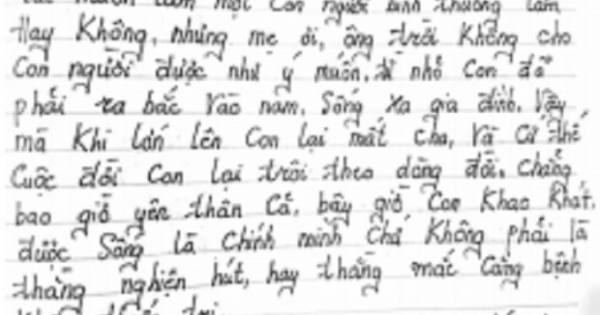 muốn làm một con người bình thường lắm
Hay Không, nhưng mẹ ơi, ông trời không cho
Con người được như ý muốn, từ nhỏ con đã
phải ra bắc vào nam, Sống xa gia đình, vậy
mà khi lớn lên con lại mất cha, và cứ thế
Cuộc đời con lại trôi theo dòng đời, chẳng
bao giờ yên thân cả, bây giờ con khao khát,
được sống là chính mình chứ không phải là
thằng nghiện hút, hay thằng mắc căng bệnh